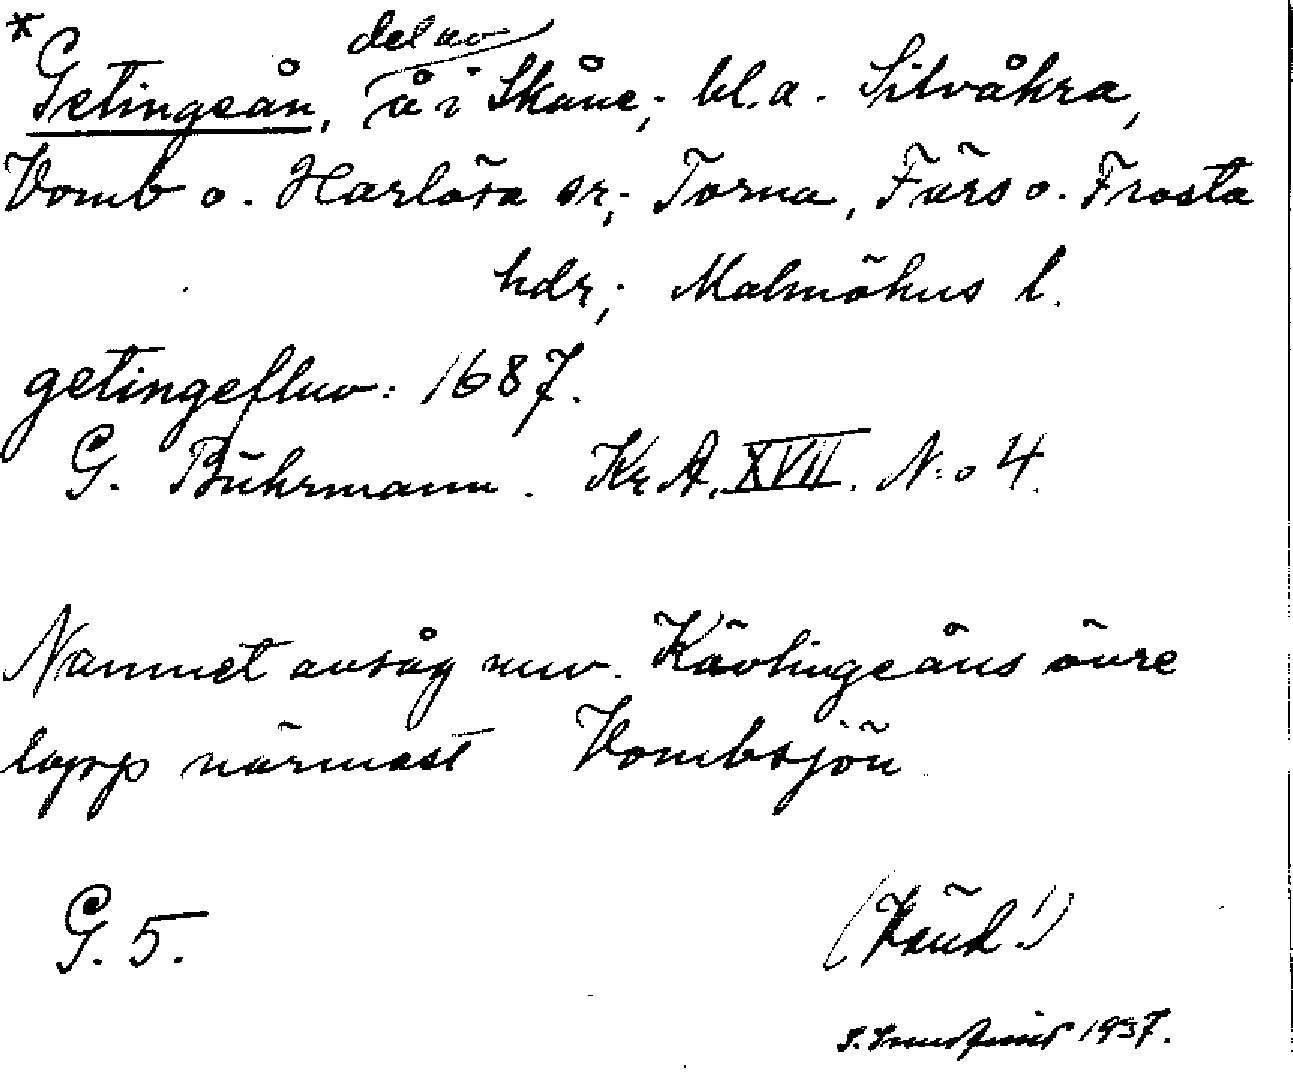 *
del av
Getingeån, å i Skåne; bl.a. Silvåkra,
Vomb o. Harlösa sr; Torna, Färs o. Frosta
hdr; Malmöhus l.
getingefluv: 1687.
G. Bührmann. Kr A. XVII. N:o 4.
Namnet avsåg nuv. Kävlingeåns övre
lopp närmast Vombsjön
G. 5.
(Vänd!)
1937.